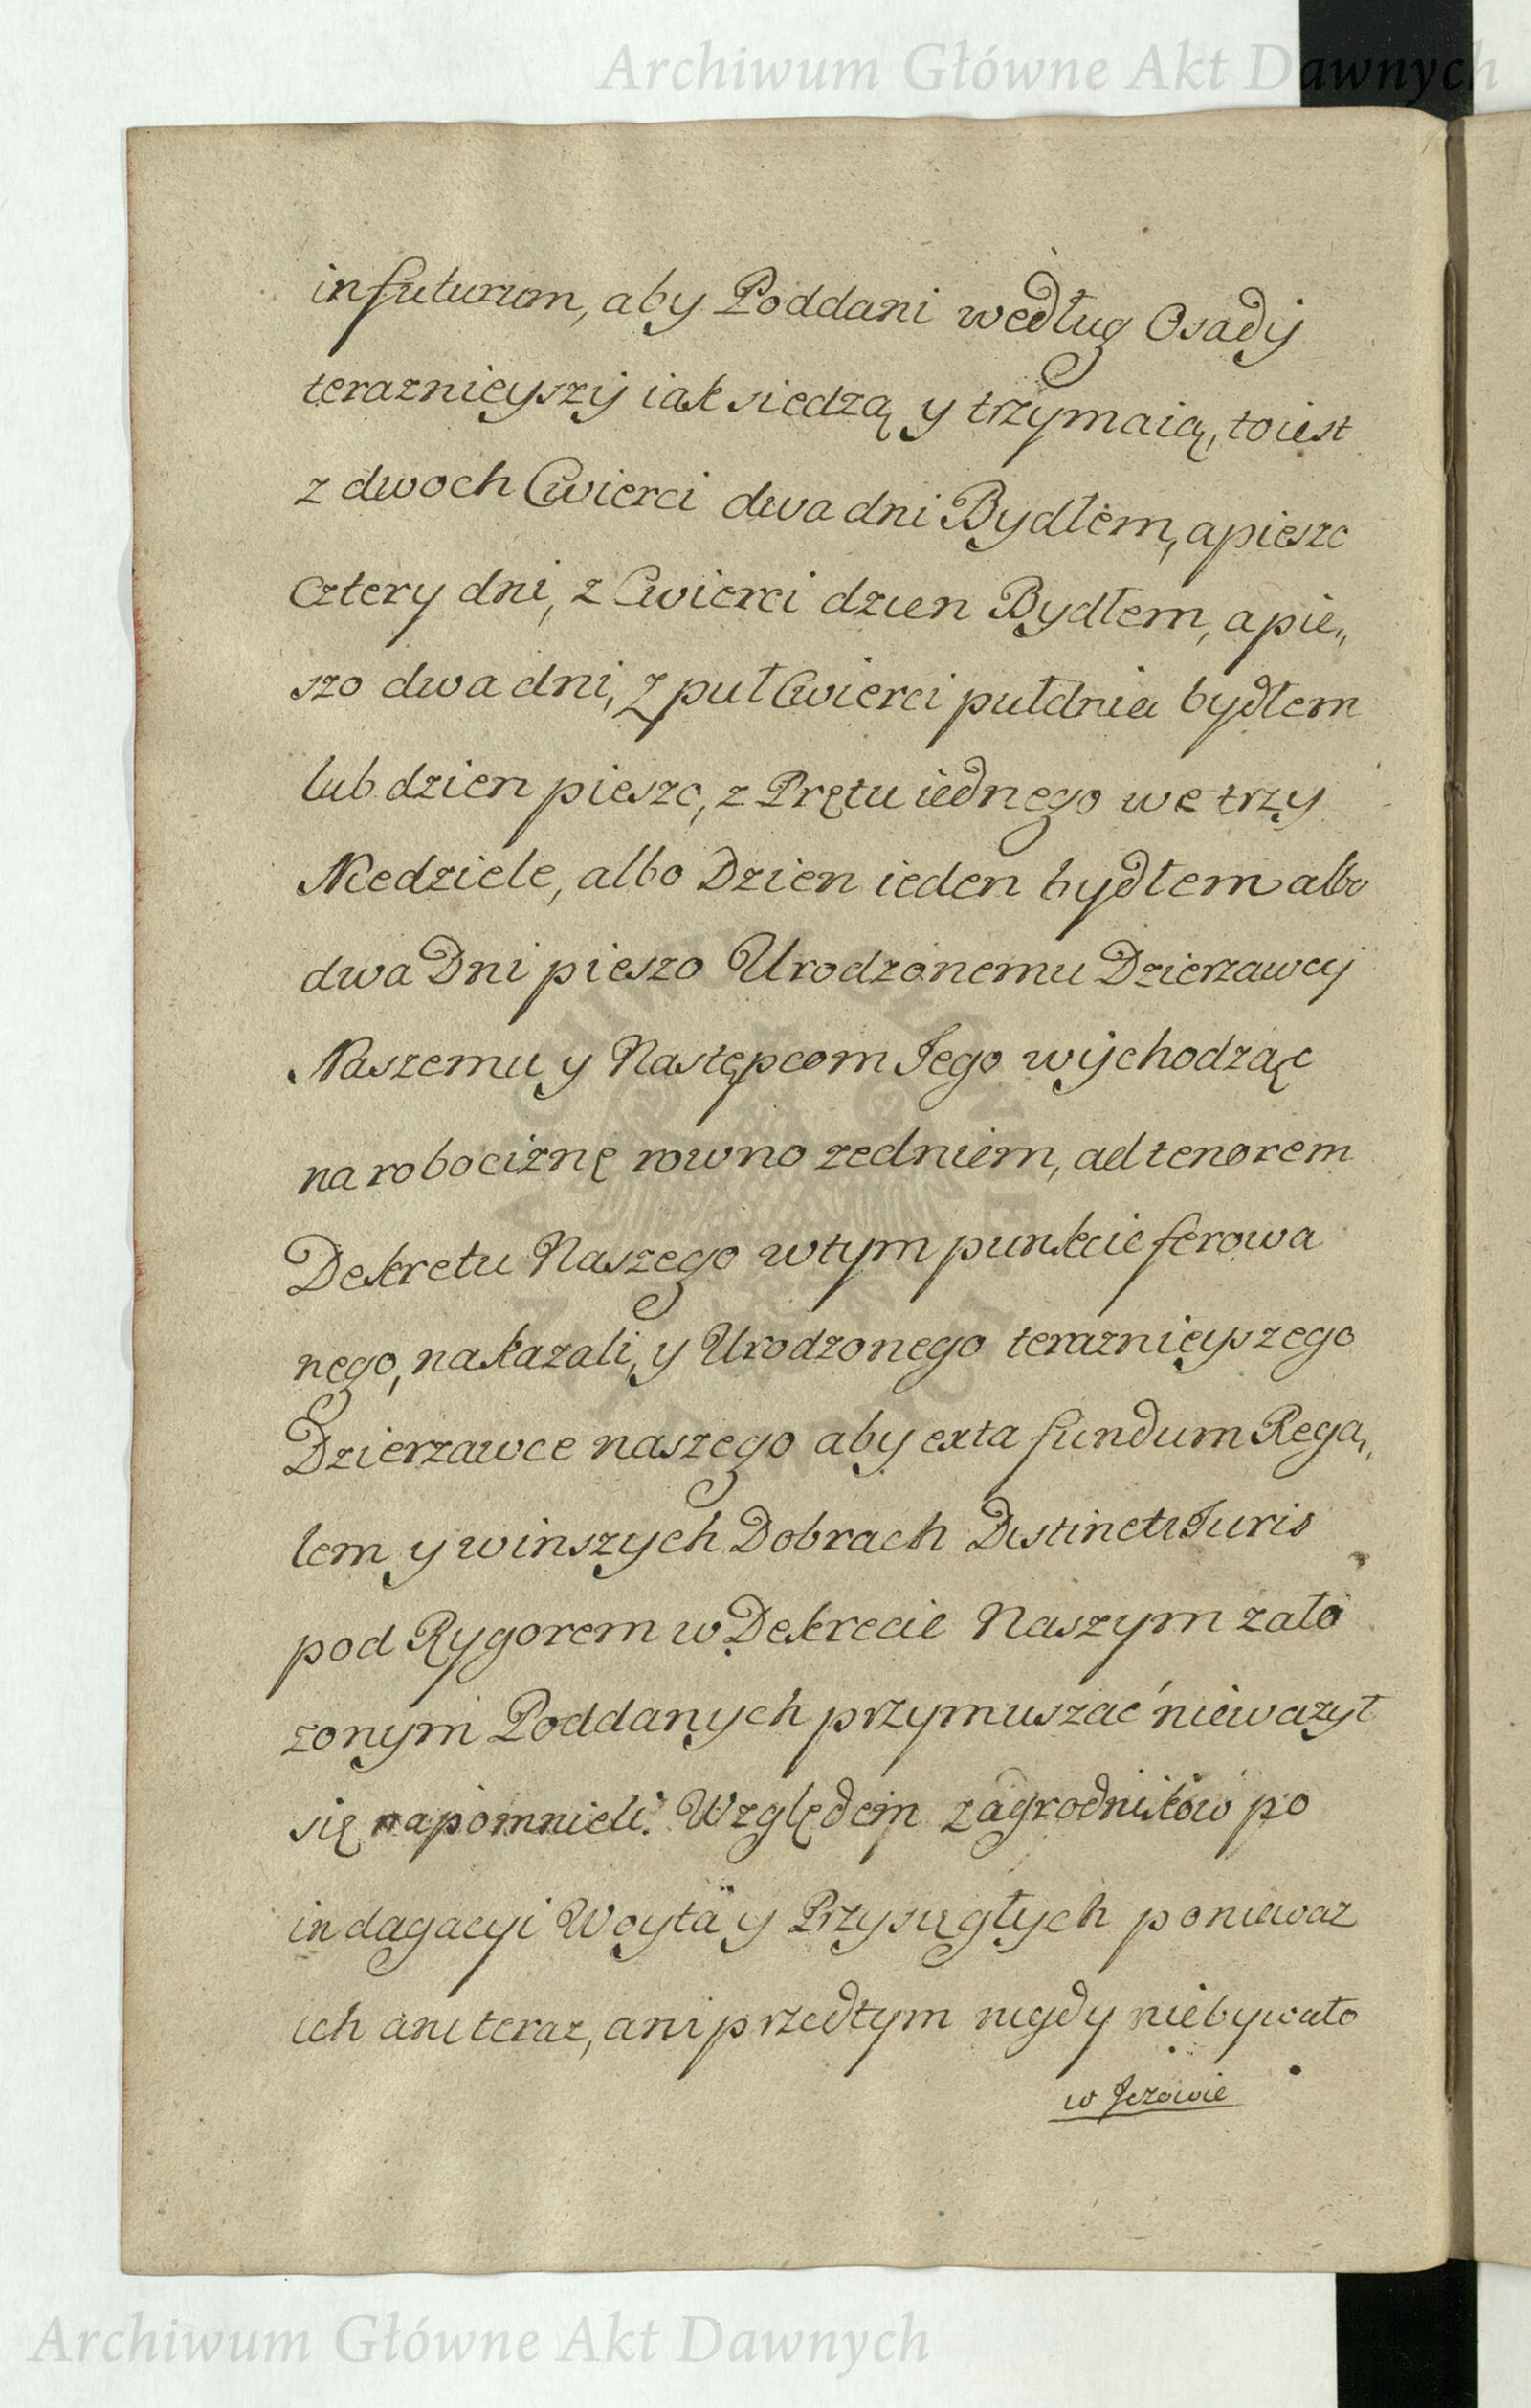 Archiwum Główne Akt Dawnych
in futurum, aby Poddani według Osady
teraznieyszy iak siedzą y trzymaią, toiest
z dwoch Cwierci dwa dni Bydłem, a pieszo
cztery dni, z Cwierci dzien Bydłem, a pie„
szo dwa dni, z puł Cwierci pułdnia bydłem
lub dzien pieszo, z Prętu iednego we trzy
Niedziele, albo Dzien ieden bydłem albo
dwa Dni pieszo Urodzonemu Dzierzawcy
Naszemu y Następcom Jego wychodząc
na robociznę rowno zedniem, ad tenorem
Dekretu Naszego wtym punkcie ferowa
nego, nakazali, y Urodzonego teraznieyszego
Dzierzawce naszego aby exta fundum Rega„
lem y winszych Dobrach Distincti Juris
pod Rygorem w Dekrecie Naszym zało
zonym Poddanych przymuszać niewazył
się napomnieli. Względem zagrodników po
indagacyi Woyta y Przysięgłych poniewaz
ich ani teraz, ani przedtym nigdy niebywało
w Jezowie
Archiwum Główne Akt Dawnych